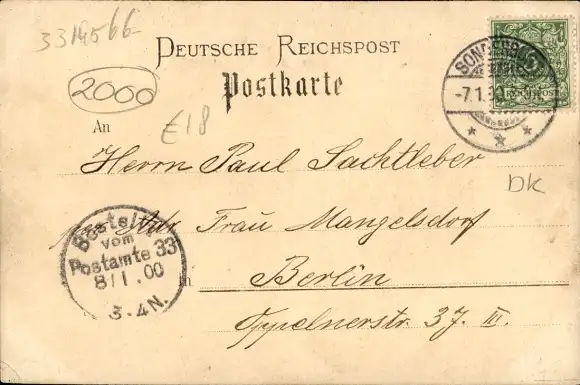 3314566
DEUTSCHE REICHSPOST
Postkarte
2000
£18
SONDERBURG
-7.1.
REICHSPOST
An
Herrn Paul Sachtleber
DK
Adr Frau Mangelsdorf
Bestellt
vom
Postamte 33
8/1.00
3-4N.
in Berlin
Oppelnerstr. 37. III.